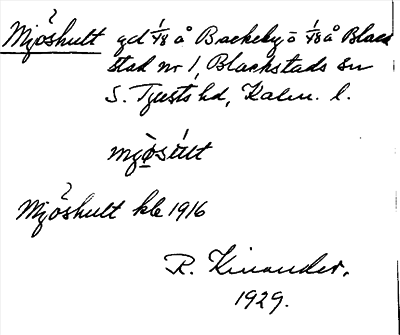 Mjöshult gd 1/48 å Backeby o 1/48 å Black
stad nr 1, Blackstads sn
S. Tjusts hd, Kalm. l.
mjǫ̀súlt
Mjöshult kb 1916
R. Kinander.
1929.